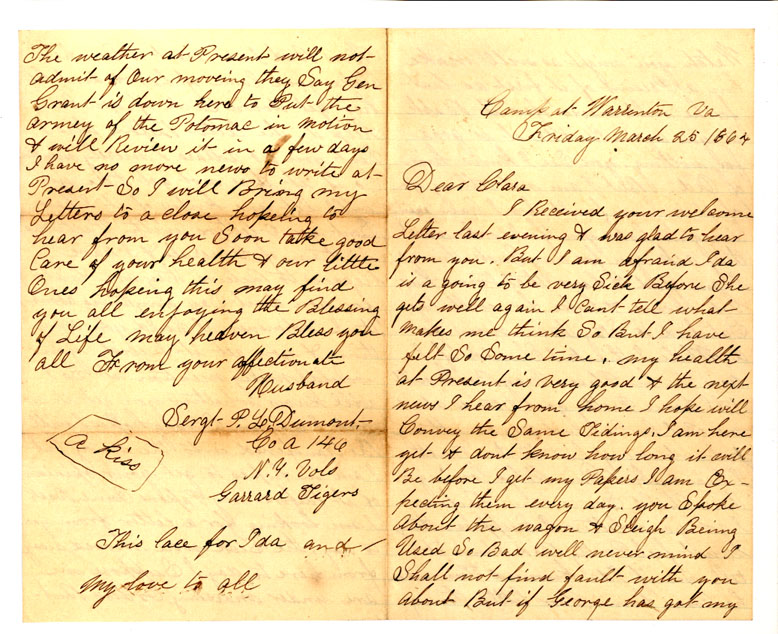 Camp at Warrenton Va
Friday March 25 1864
Dear Clara
I Received your welcome
Letter last evening & was glad to hear
from you. But I am afraid Ida
is a going to be very Sick Before She
gets well again I Cant tell what
makes me think So But I have
felt So Some time. my health
at Present is very good & the next
news I hear from home I hope will
Convey the Same Tidings. I am here
yet & dont know how long it will
Be before I get my Papers I am Ex-
pecting them every day. you Spoke
About the wagon & Sleigh Being
Used So Bad will never mind I
Shall not find fault with you
about But if George has got my
The weather at Present will not
admit of Our moveing they Say Gen
Grant is down here to Put the
armey of the Potomac in motion
& will Review it in a few days
I have no more news to write at
Present So I will Bring my
Letters to a close hopeing to
hear from you Soon take good
Care of your health & our little
Ones hopeing this may find
you all enjoying the Blessing
of Life may heaven Bless you
all From your affectionate
Husband
Sergt P. L. Dumont
Co A 146
N.Y. Vols
Garrard Tigers
a kiss
This lace for Ida and
my love to all